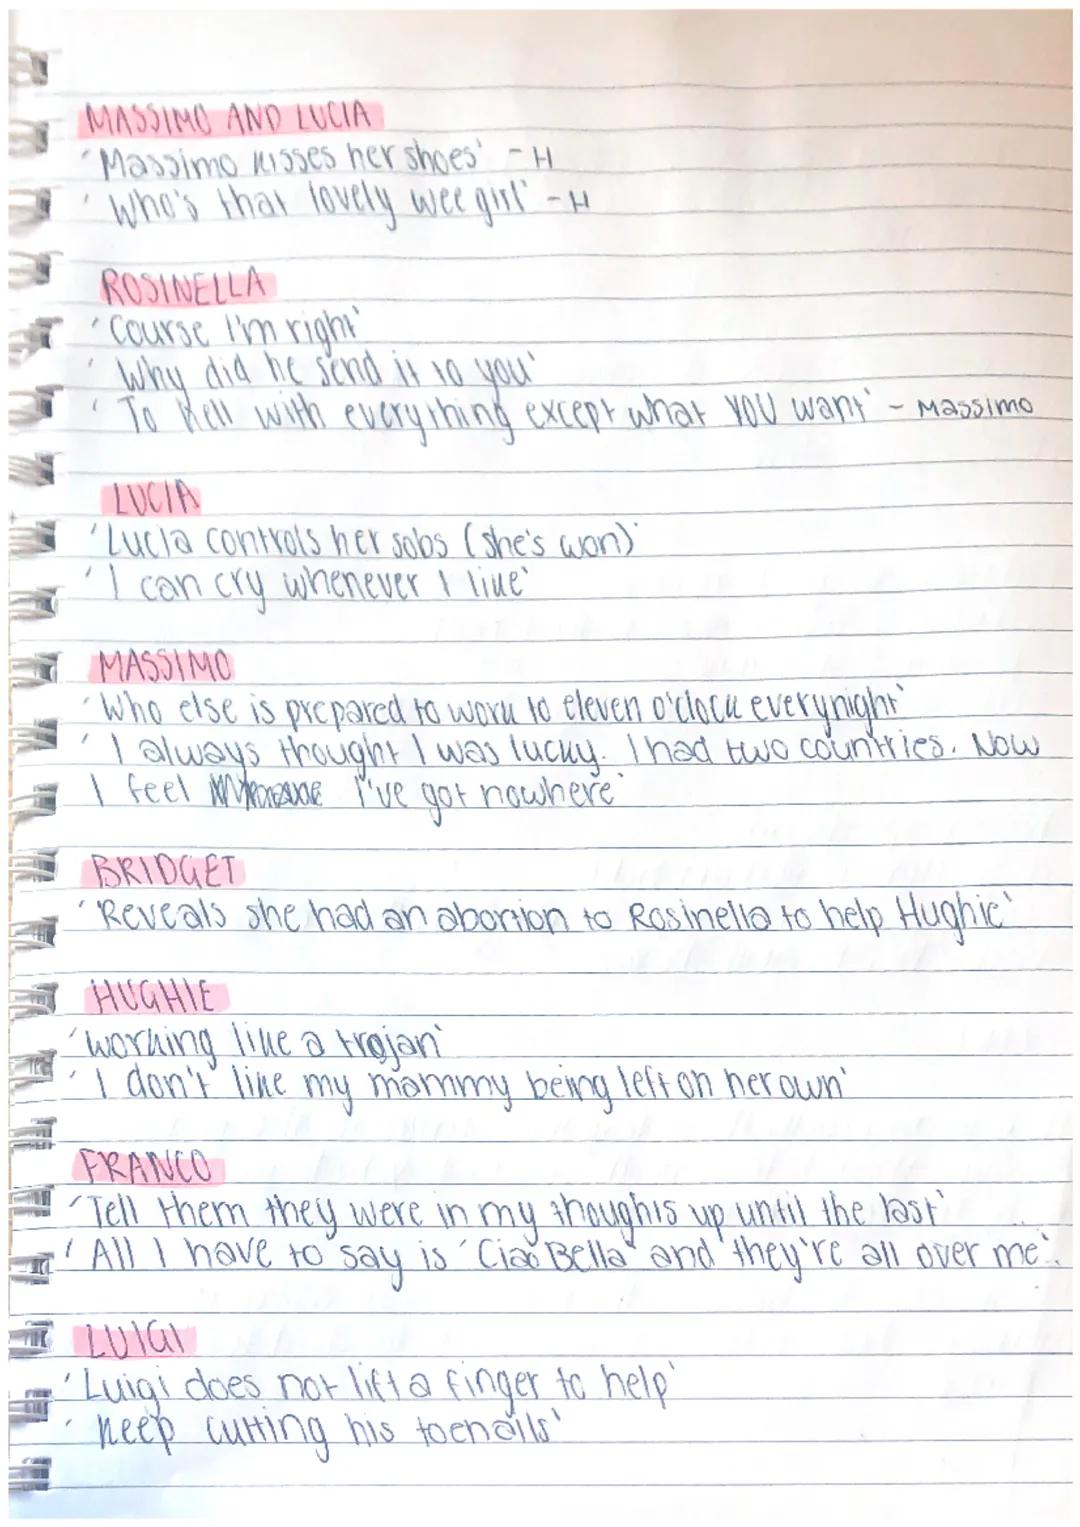 MASSIMO AND LUCIA
'Massimo kisses her shoes' - H
'Who's that lovely wee girl' - H
ROSINELLA
'Course I'm right'
'Why did he send it to you'
'To hell with everything except what YOU want' - Massimo
LUCIA
'Lucia controls her sobs (she's won)'
'I can cry whenever I like'
MASSIMO
'Who else is prepared to work to eleven o'clock everynight'
'I always thought I was lucky. I had two countries. Now
I feel I've got nowhere'
BRIDGET
'Reveals she had an abortion to Rosinella to help Hughie'
HUGHIE
'working like a trojan'
'I don't like my mammy being left on her own'
FRANCO
'Tell them they were in my thoughts up until the last'
'All I have to say is 'Ciao Bella' and 'they're all over me'.
LUIGI
'Luigi does not lift a finger to help'
'keep cutting his toenails'